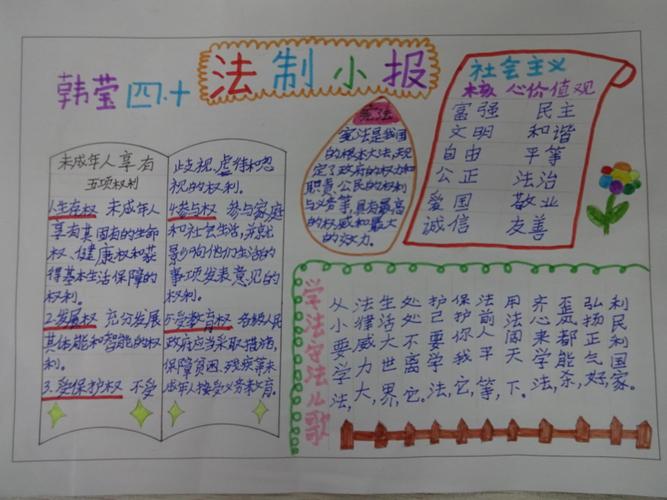 韩莹 四.十
法制小报
未成年人享有
五项权利
1.生存权 未成年人
享有其固有的生命
权、健康权和获
得基本生活保障的
权利。
2.发展权 充分发展
其体能和智能的权
利。
3.受保护权 不受
歧视,虐待和忽
视的权利。
4.参与权 参与家庭
和社会生活,并就
影响他们生活的
事项发表意见的
权利。
5.受教育权 各级人民
政府应当采取措施,
保障贫困、残疾等未
成年人接受义务教育。
宪法
宪法是我国
的根本大法,规
定了政府的权力和
职责,公民的权利
与义务等,具有最高
的权威和最大
的效力。
社会主义
核心价值观
富强 民主
文明 和谐
自由 平等
公正 法治
爱国 敬业
诚信 友善
学法守法儿歌
从小要学法,
法律威力大,
生活大世界,
处处不离它。
护己要学法,
保护你我它,
法前人平等,
用法闯天下。
齐心来学法,
歪邪都能杀,
弘扬正气好,
利民利国家。